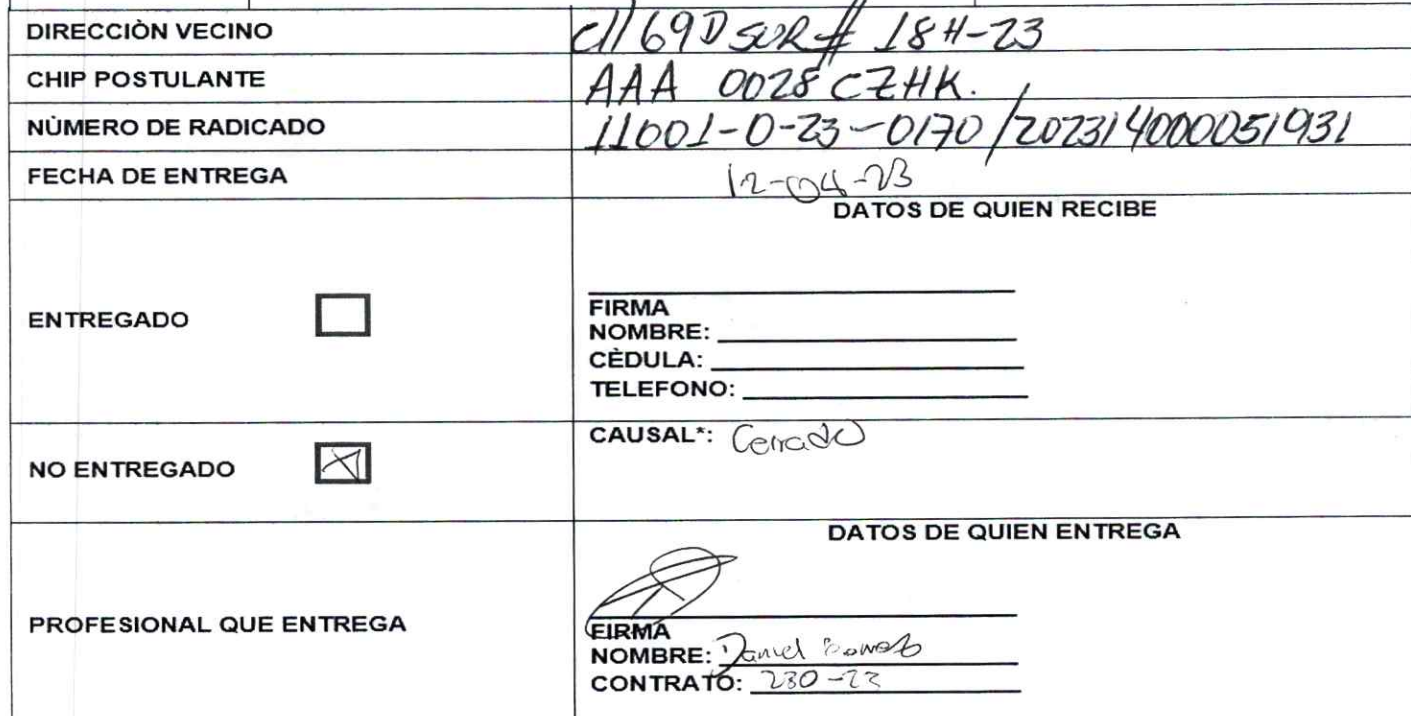 DIRECCIÒN VECINO cll 69D SUR # 18H-23
CHIP POSTULANTE AAA 0028 CZHK.
NÙMERO DE RADICADO 11001-0-23-0170 / 202314000051931
FECHA DE ENTREGA 12-04-23
DATOS DE QUIEN RECIBE
ENTREGADO
FIRMA
NOMBRE:
CÈDULA:
TELEFONO:
NO ENTREGADO
CAUSAL*: Cerrado
DATOS DE QUIEN ENTREGA
PROFESIONAL QUE ENTREGA
FIRMA
NOMBRE: Daniel
CONTRATO: